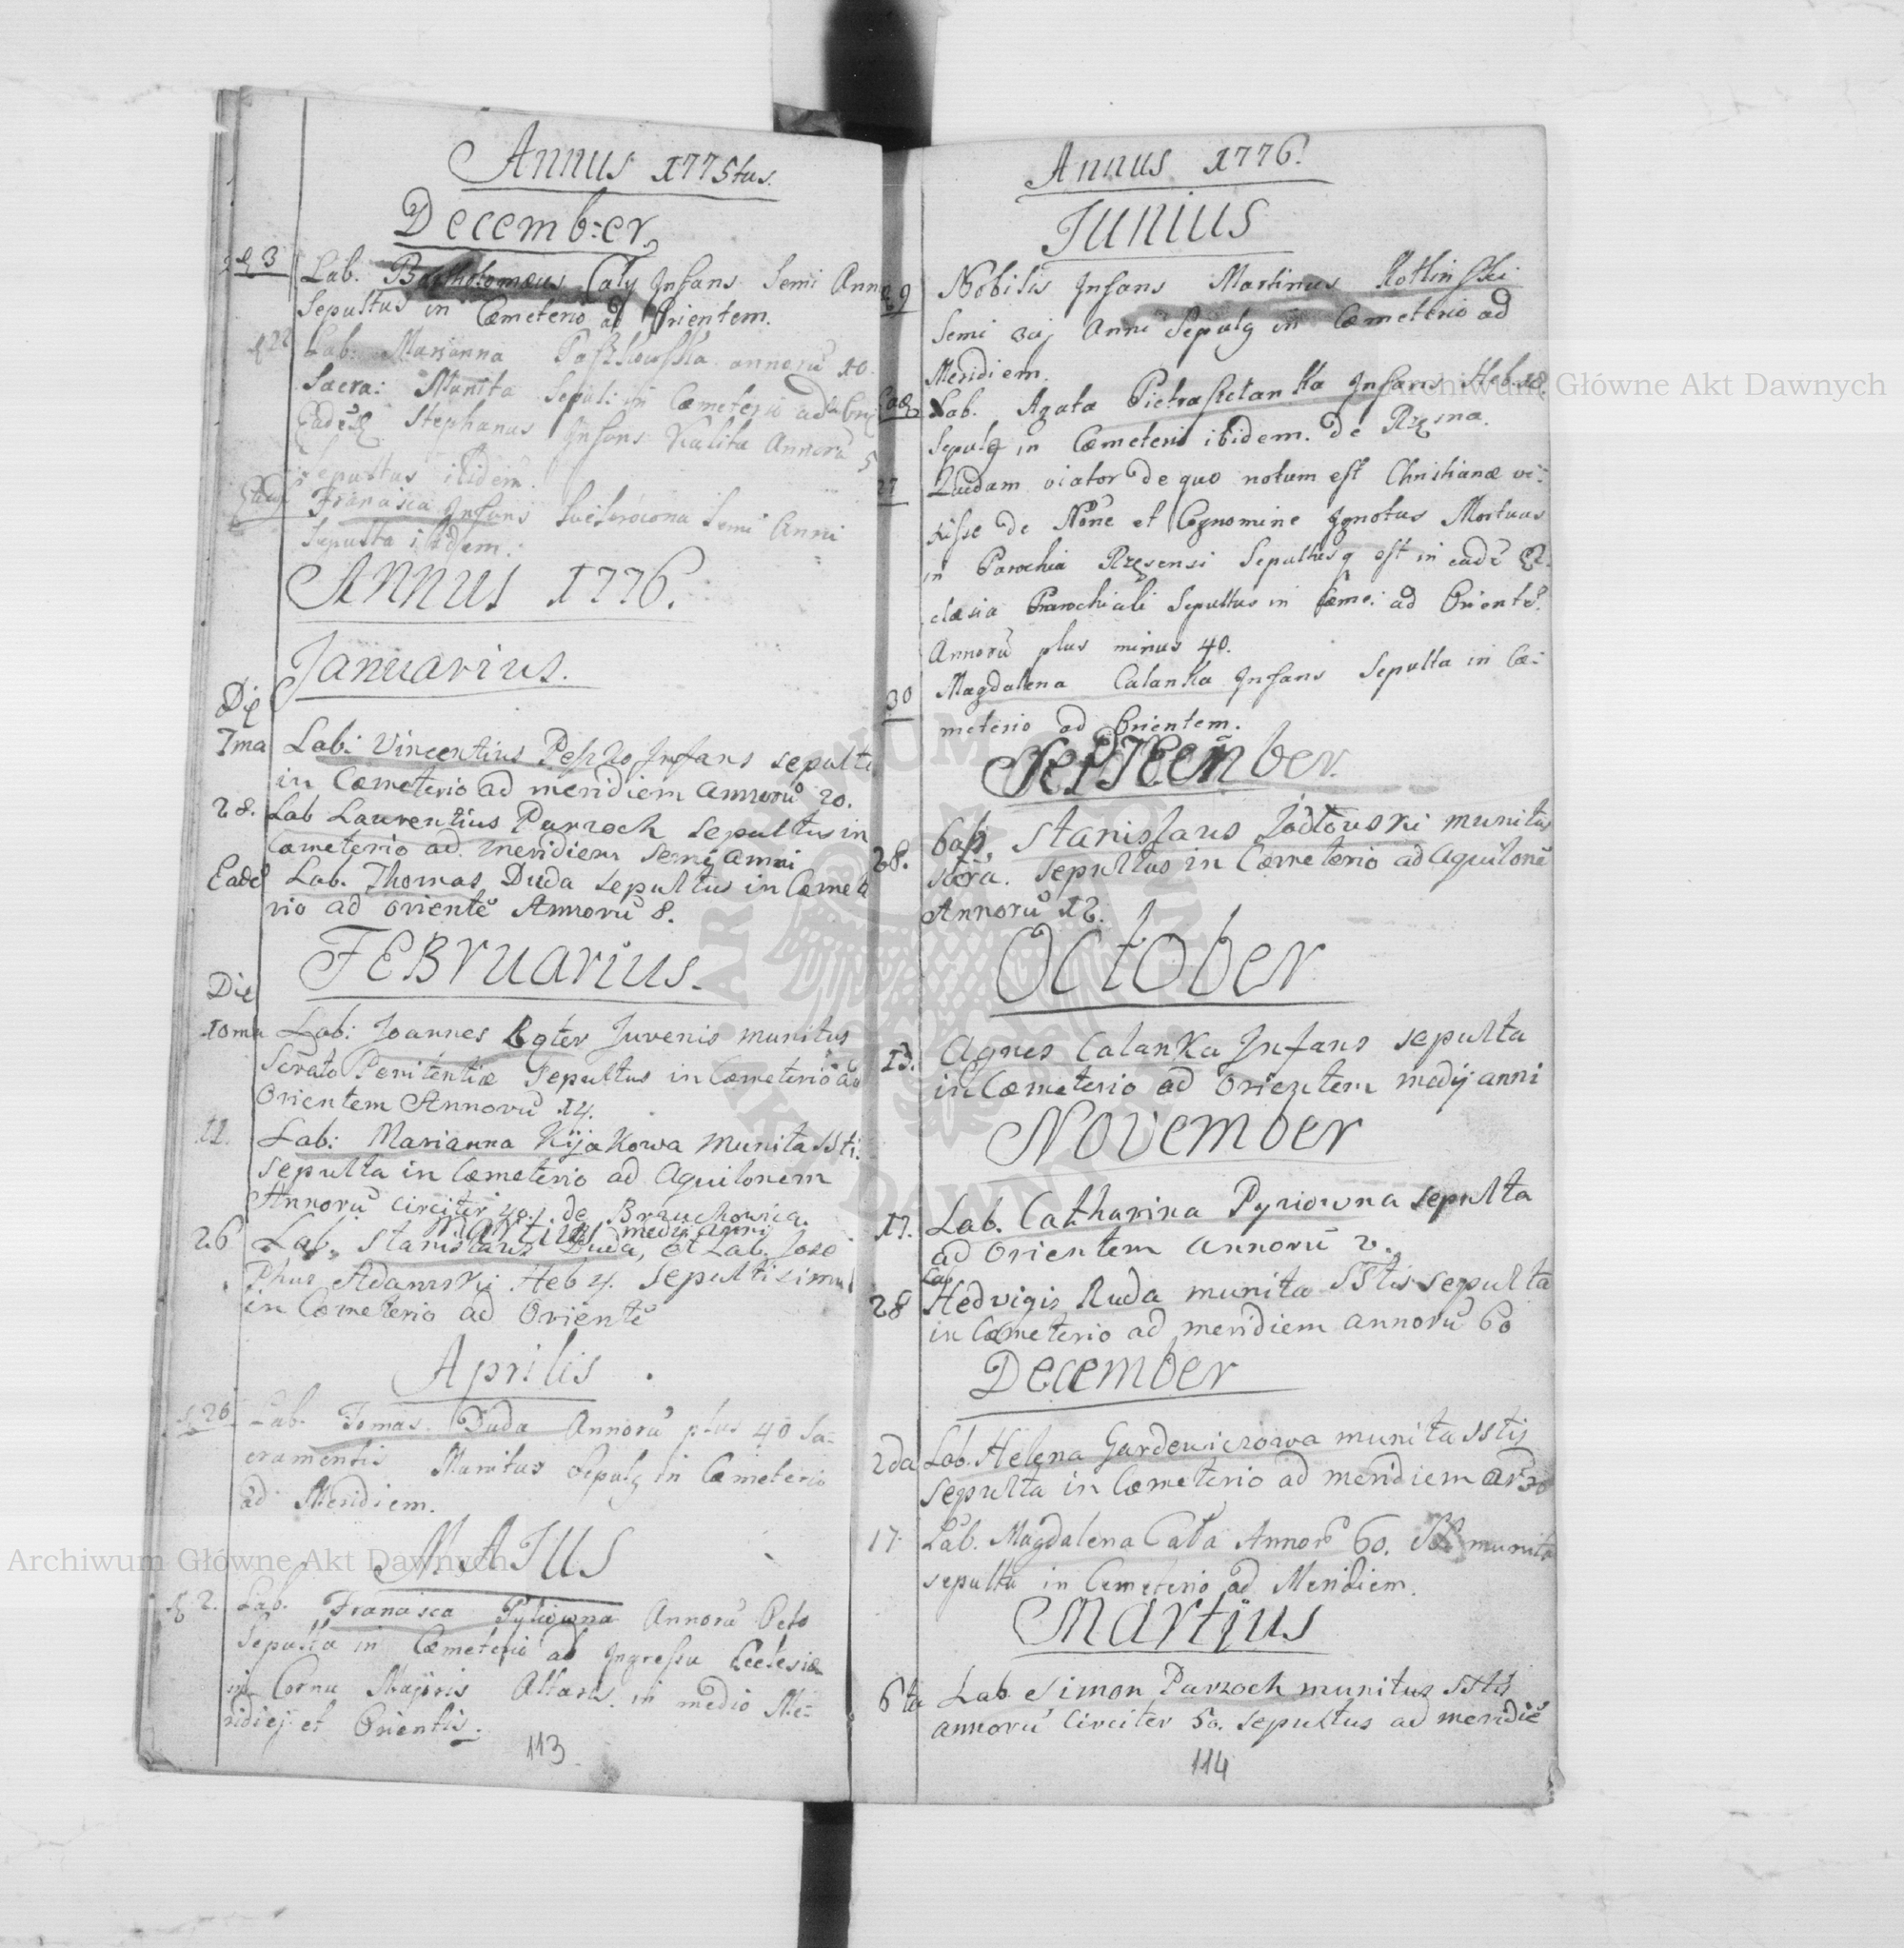 Annus 1775tus.
December
3 Lab. Bartholomæus Caly Infans Semi Anni
Sepultus in Cæmeterio ad Orientem.
22 Lab: Marianna annorũ 10.
Sacra: Munita Sepul: in Cæmeterio ad Ori
Eadẽ Stephanus Infans Kalita Annorũ 5
Sepultus ibidem.
Francisca Infans Semi Anni
Sepulta ibidem.
ANNUS 1776.
Januarius.
Die
1ma Lab: Vincentius Infans sepultus
in Cæmeterio ad meridiem annorũ 20.
28. Lab Laurentius Parzoch sepultus in
Cæmeterio ad meridiem semi anni
Eadẽ Lab. Thomas Duda sepultus in Cæmete
rio ad orientẽ Annorũ 8.
FEBRUARIUS.
Die
10ma Lab: Joannes Juvenis munitus
Scrãto Penitentiæ Sepultus in Cæmeterio ad
Orientem Annorũ 14.
12. Lab: Marianna Kijakowa munita SSti.
sepulta in Cæmeterio ad Aquilonem
Annorũ circiter 40. de Brzuchowica.
Martius medij anni
26 Lab. Stanislaus Duda, et Lab. Jose
Phus Adamski Heb 4. sepulti simul
in Cæmeterio ad Orientẽ
Aprilis.
26 Lab. Tomas Duda Annorũ plus 40 Sa=
cramentis Munitus Sepulq in Cæmeterio
ad Meridiem.
MAIUS
2. Lab. Francisca Annorũ Octo
Sepulta in Cæmeterio ad Ingressu Ecclesiæ
in Cornu Majoris Altaris in medio Me=
ridiej et Orientis.
113
Annus 1776.
IUNIUS
9 Nobilis Infans Martinus Kotlinski
Semi Anni Sepulq in Cæmeterio ad
Meridiem.
Eadẽ Lab. Agata Pietrasietanka Infans Heb.
Sepulq in Cæmeterio ibidem. de Rzęsna.
27 Quidam viator de quo notum est Christianæ vi=
xisse de Nõne et Cognomine Ignotus Mortuus
in Parochia Rzęsensi Sepultusq est in eadẽ Ec
clæsia Parochiali Sepultus in Cæme: ad Orientẽ.
Annorũ plus minus 40.
30 Magdalena Calanka Infans Sepulta in Cæ=
meterio ad Orientem.
September.
28. Stanislaus Jodłowski munitus
Scra. sepultus in Cæmeterio ad Aquilonẽ
Annorũ 12.
October
13. Agnes Calanka Infans sepulta
in Cæmeterio ad Orientem medij anni
November
17. Lab. Catharina Pyriowna sepulta
ad Orientem annorũ 2.
Lab
28 Hedvigis Ruda munita SStis sepulta
in Cæmeterio ad meridiem annorũ 60
December
2da Lab. Helena Gardewiczowa munita SStis
sepulta in Cæmeterio ad meridiem
17. Lab. Magdalena Cała Annorũ 60. munita
sepulta in Cæmeterio ad Meridiem.
Martius
6ta Lab. Simon Parzoch munitus SStis
annorũ circiter 50. sepultus ad meridiẽ
114
Archiwum Główne Akt Dawnych
Archiwum Główne Akt Dawnych
ARCHIWUM GŁÓWNE AKT DAWNYCH